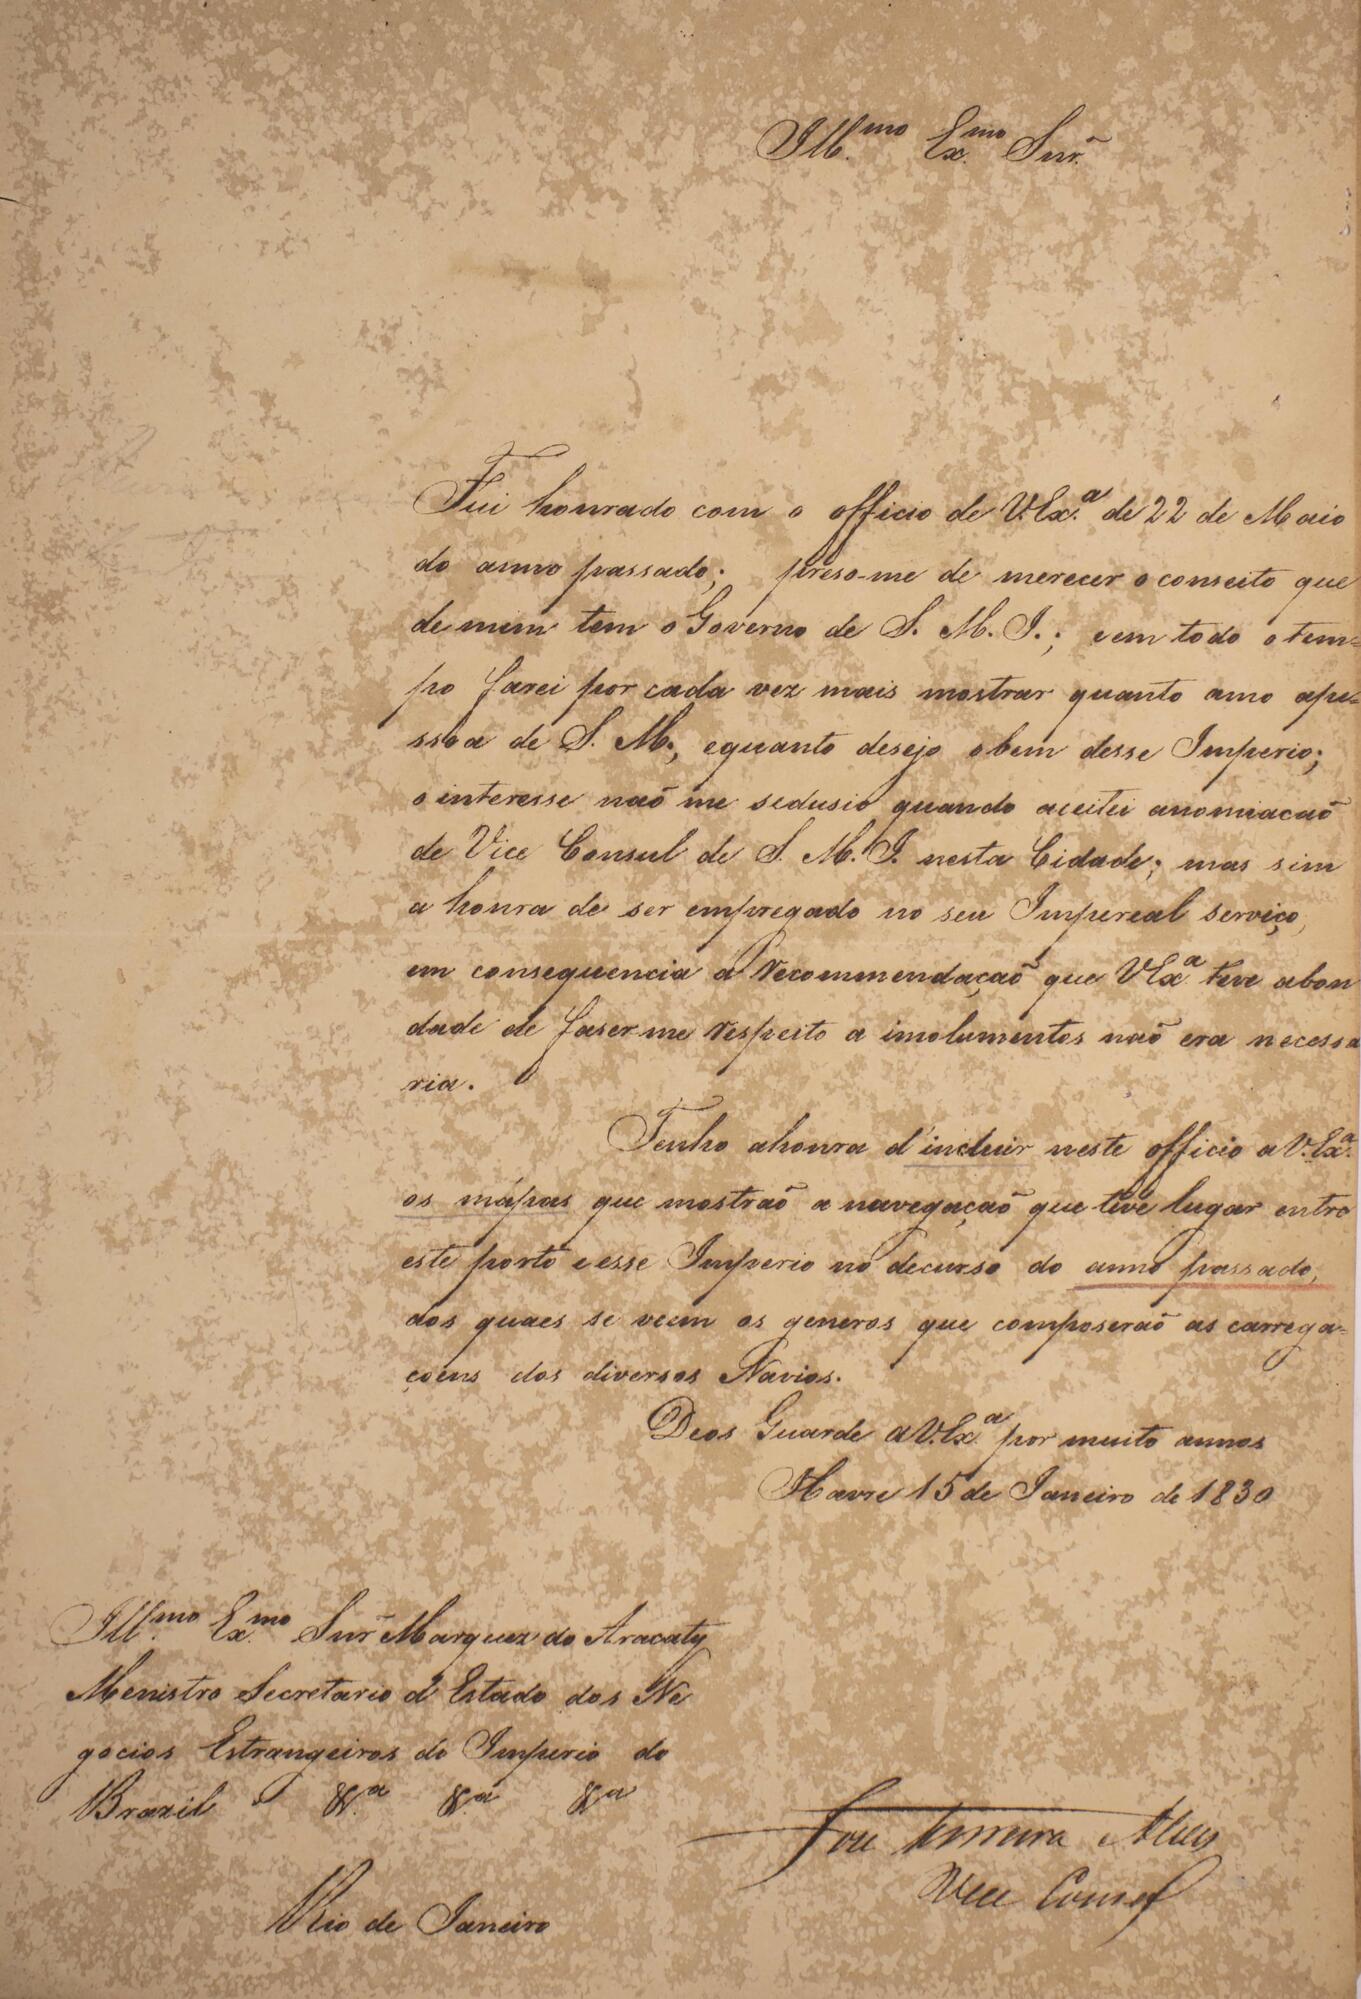 Ill.mo Ex.mo Snr.
Fui honrado com o officio de V.Ex.a de 22 de Maio
do anno passado; préso-me de merecer o conseito que
de mim tem o Governo de S. M. I.; e em todo o tem-
po farei por cada vez mais mostrar quanto amo a pe-
ssoa de S. M., e quanto desejo o bem desse Imperio;
o interesse naõ me sedusio quando aceitei a nomiacaõ
de Vice Consul de S. M. I. nesta Cidade; mas sim
a honra de ser empregado no seu Impereal serviço,
em consequencia a recommendaçaõ que V Ex.a teve a bon
dade de faser me respeito a imolumentos naõ era necessa
ria.
Tenho a honra d'incluir neste officio a V. Ex.a
os mápas que mostraõ a navegaçaõ que teve lugar entre
este porto e esse Imperio no decurso do anno passado,
dos quaes se veem os generos que composeraõ as carrega-
çoens dos diversos Navios.
Deos Guarde a V.Ex.a por muito annos
Havre 15 de Janeiro de 1830
Ill.mo Ex.mo Snr Marquez do Aracaty
Menistro Secretario d'Estado dos Ne
gocios Estrangeiros do Imperio do
Brazil &.a &.a &.a
Vice Consul
Rio de Janeiro